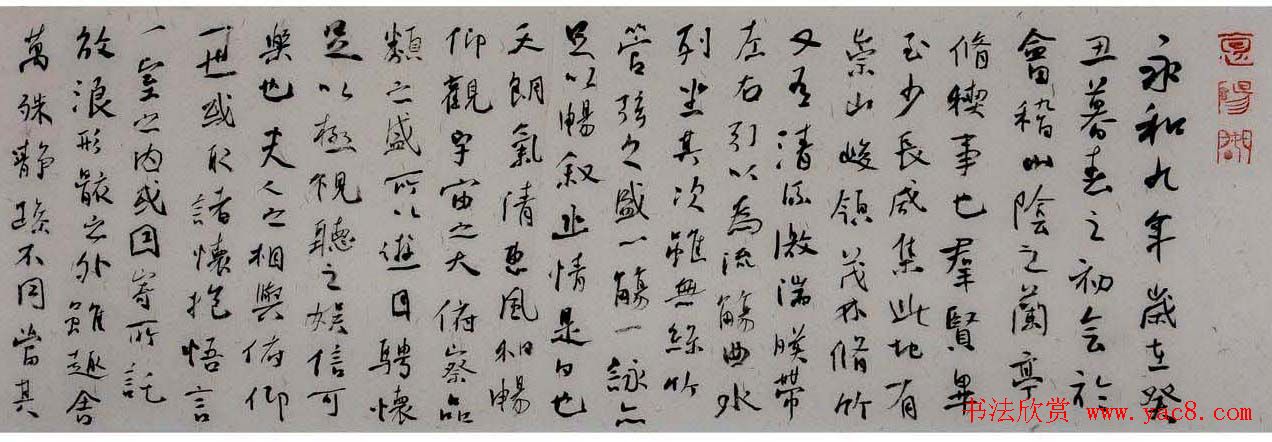 永和九年歲在癸
丑暮春之初會於
會稽山陰之蘭亭
脩稧事也羣賢畢
至少長咸集此地有
崇山峻領茂林脩竹
又有清流激湍暎帶
左右引以為流觴曲水
列坐其次雖無絲竹
管弦之盛一觴一詠亦
足以暢叙幽情是日也
天朗氣清惠風和暢
仰觀宇宙之大俯察品
類之盛所以遊目騁懷
足以極視聽之娛信可
樂也夫人之相與俯仰
一世或取諸懷抱悟言
一室之内或因寄所託
放浪形骸之外雖趣舍
萬殊静躁不同當其
书法欣赏 www.yac8.com